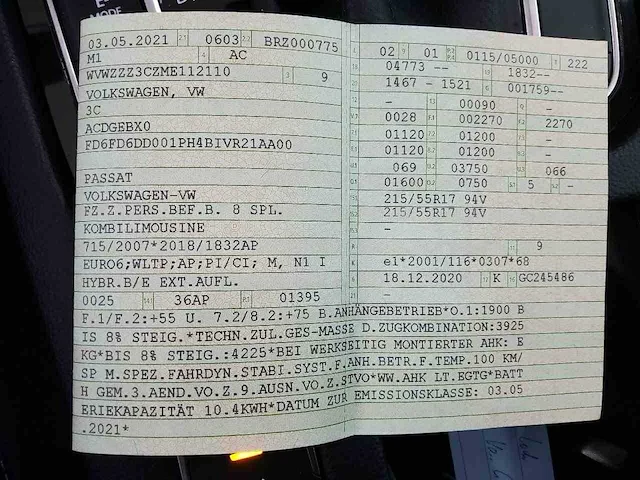 03.05.2021 0603 BRZ000775
M1 AC
WVWZZZ3CZME112110 9
VOLKSWAGEN, VW
3C
ACDGEBX0
FD6FD6DD001PH4BIVR21AA00
PASSAT
VOLKSWAGEN-VW
FZ.Z.PERS.BEF.B. 8 SPL.
KOMBILIMOUSINE
715/2007*2018/1832AP
EURO6;WLTP;AP;PI/CI; M, N1 I
HYBR.B/E EXT.AUFL.
0025 36AP 01395
02 01 0115/05000 222
04773 -- 1832--
1467 - 1521 001759--
- 00090 -
0028 002270 2270
01120 01200 -
01120 01200 -
069 03750 066
01600 0750 5 -
215/55R17 94V
215/55R17 94V
-
-
- 9
e1*2001/116*0307*68
18.12.2020 K GC245486
-
F.1/F.2:+55 U. 7.2/8.2:+75 B.ANHÄNGEBETRIEB*O.1:1900 B
IS 8% STEIG.*TECHN.ZUL.GES-MASSE D.ZUGKOMBINATION:3925
KG*BIS 8% STEIG.:4225*BEI WERKSEITIG MONTIERTER AHK: E
SP M.SPEZ.FAHRDYN.STABI.SYST.F.ANH.BETR.F.TEMP.100 KM/
H GEM.3.AEND.VO.Z.9.AUSN.VO.Z.STVO*WW.AHK LT.EGTG*BATT
ERIEKAPAZITÄT 10.4KWH*DATUM ZUR EMISSIONSKLASSE: 03.05
.2021*